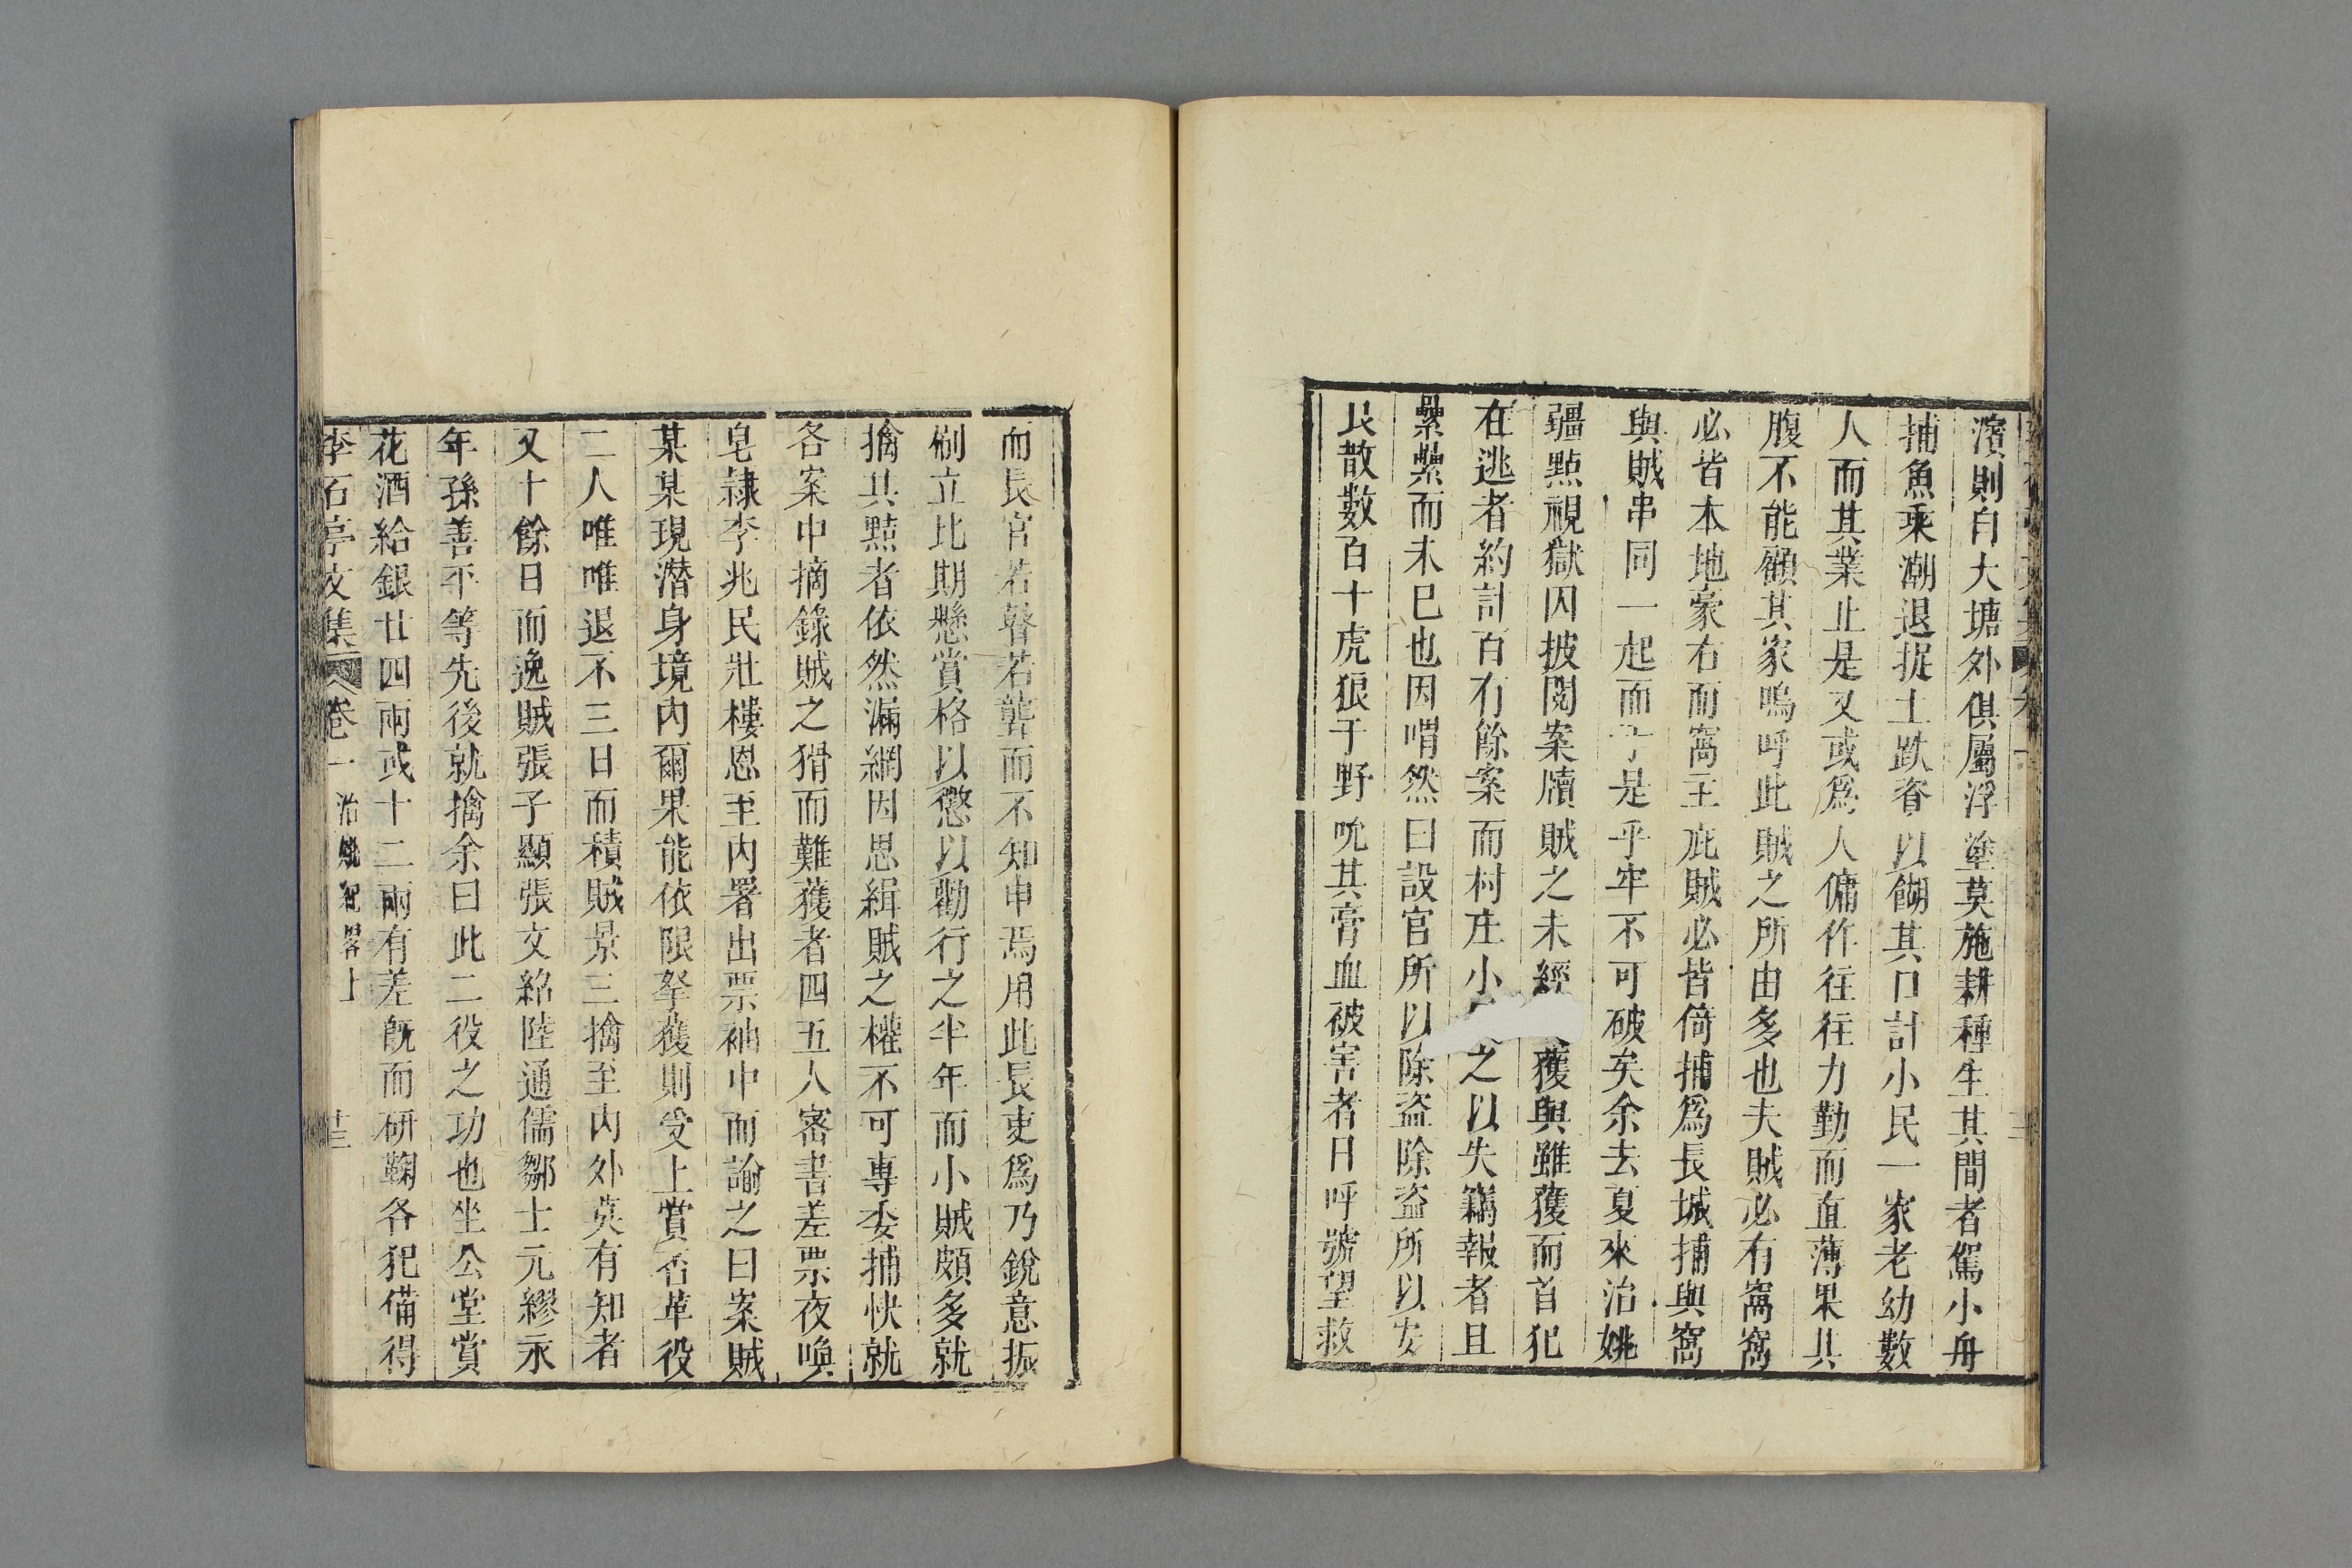 濱則自大塘外俱屬浮塗莫施耕種生其間者駕小舟
捕魚乘潮退捉土跌眷以餬其口計小民一家老幼數
人而其業止是又或爲人傭作往往力勤而直薄果其
腹不能顧其家嗚呼此賊之所由多也夫賊必有窩窩
必皆本地豪右而窩主庇賊必皆倚捕爲長城捕與窩
與賊串同一起而 于是乎牢不可破矣余去夏來治姚
疆點視獄囚披閱案牘賊之未經 獲與雖獲而首犯
在逃者約計百有餘案而村庄小 之以失竊報者且
纍纍而未已也因喟然曰設官所以除盜除盜所以安
民散數百十虎狼于野吮其膏血被害者日呼號望救
而長官若瞽若聾而不知申焉用此長吏爲乃銳意振
刷立比期懸賞格以懲以勸行之半年而小賊頗多就
擒其黠者依然漏網因思緝賊之權不可專委捕快就
各案中摘錄賊之猾而難獲者四五人密書差票夜喚
皂隸李兆民壯樓恩至內署出票袖中而諭之曰案賊
某某現潛身境內爾果能依限拏獲則受上賞否革役
二人唯唯退不三日而積賊景三擒至內外莫有知者
又十餘日而逸賊張子顯張文紹陸通儒鄒士元繆永
年孫善平等先後就擒余曰此二役之功也坐公堂賞
花酒給銀廿四兩或十二兩有差旣而研鞠各犯備得
李石亭文集 卷一 治姚紀畧上 十三